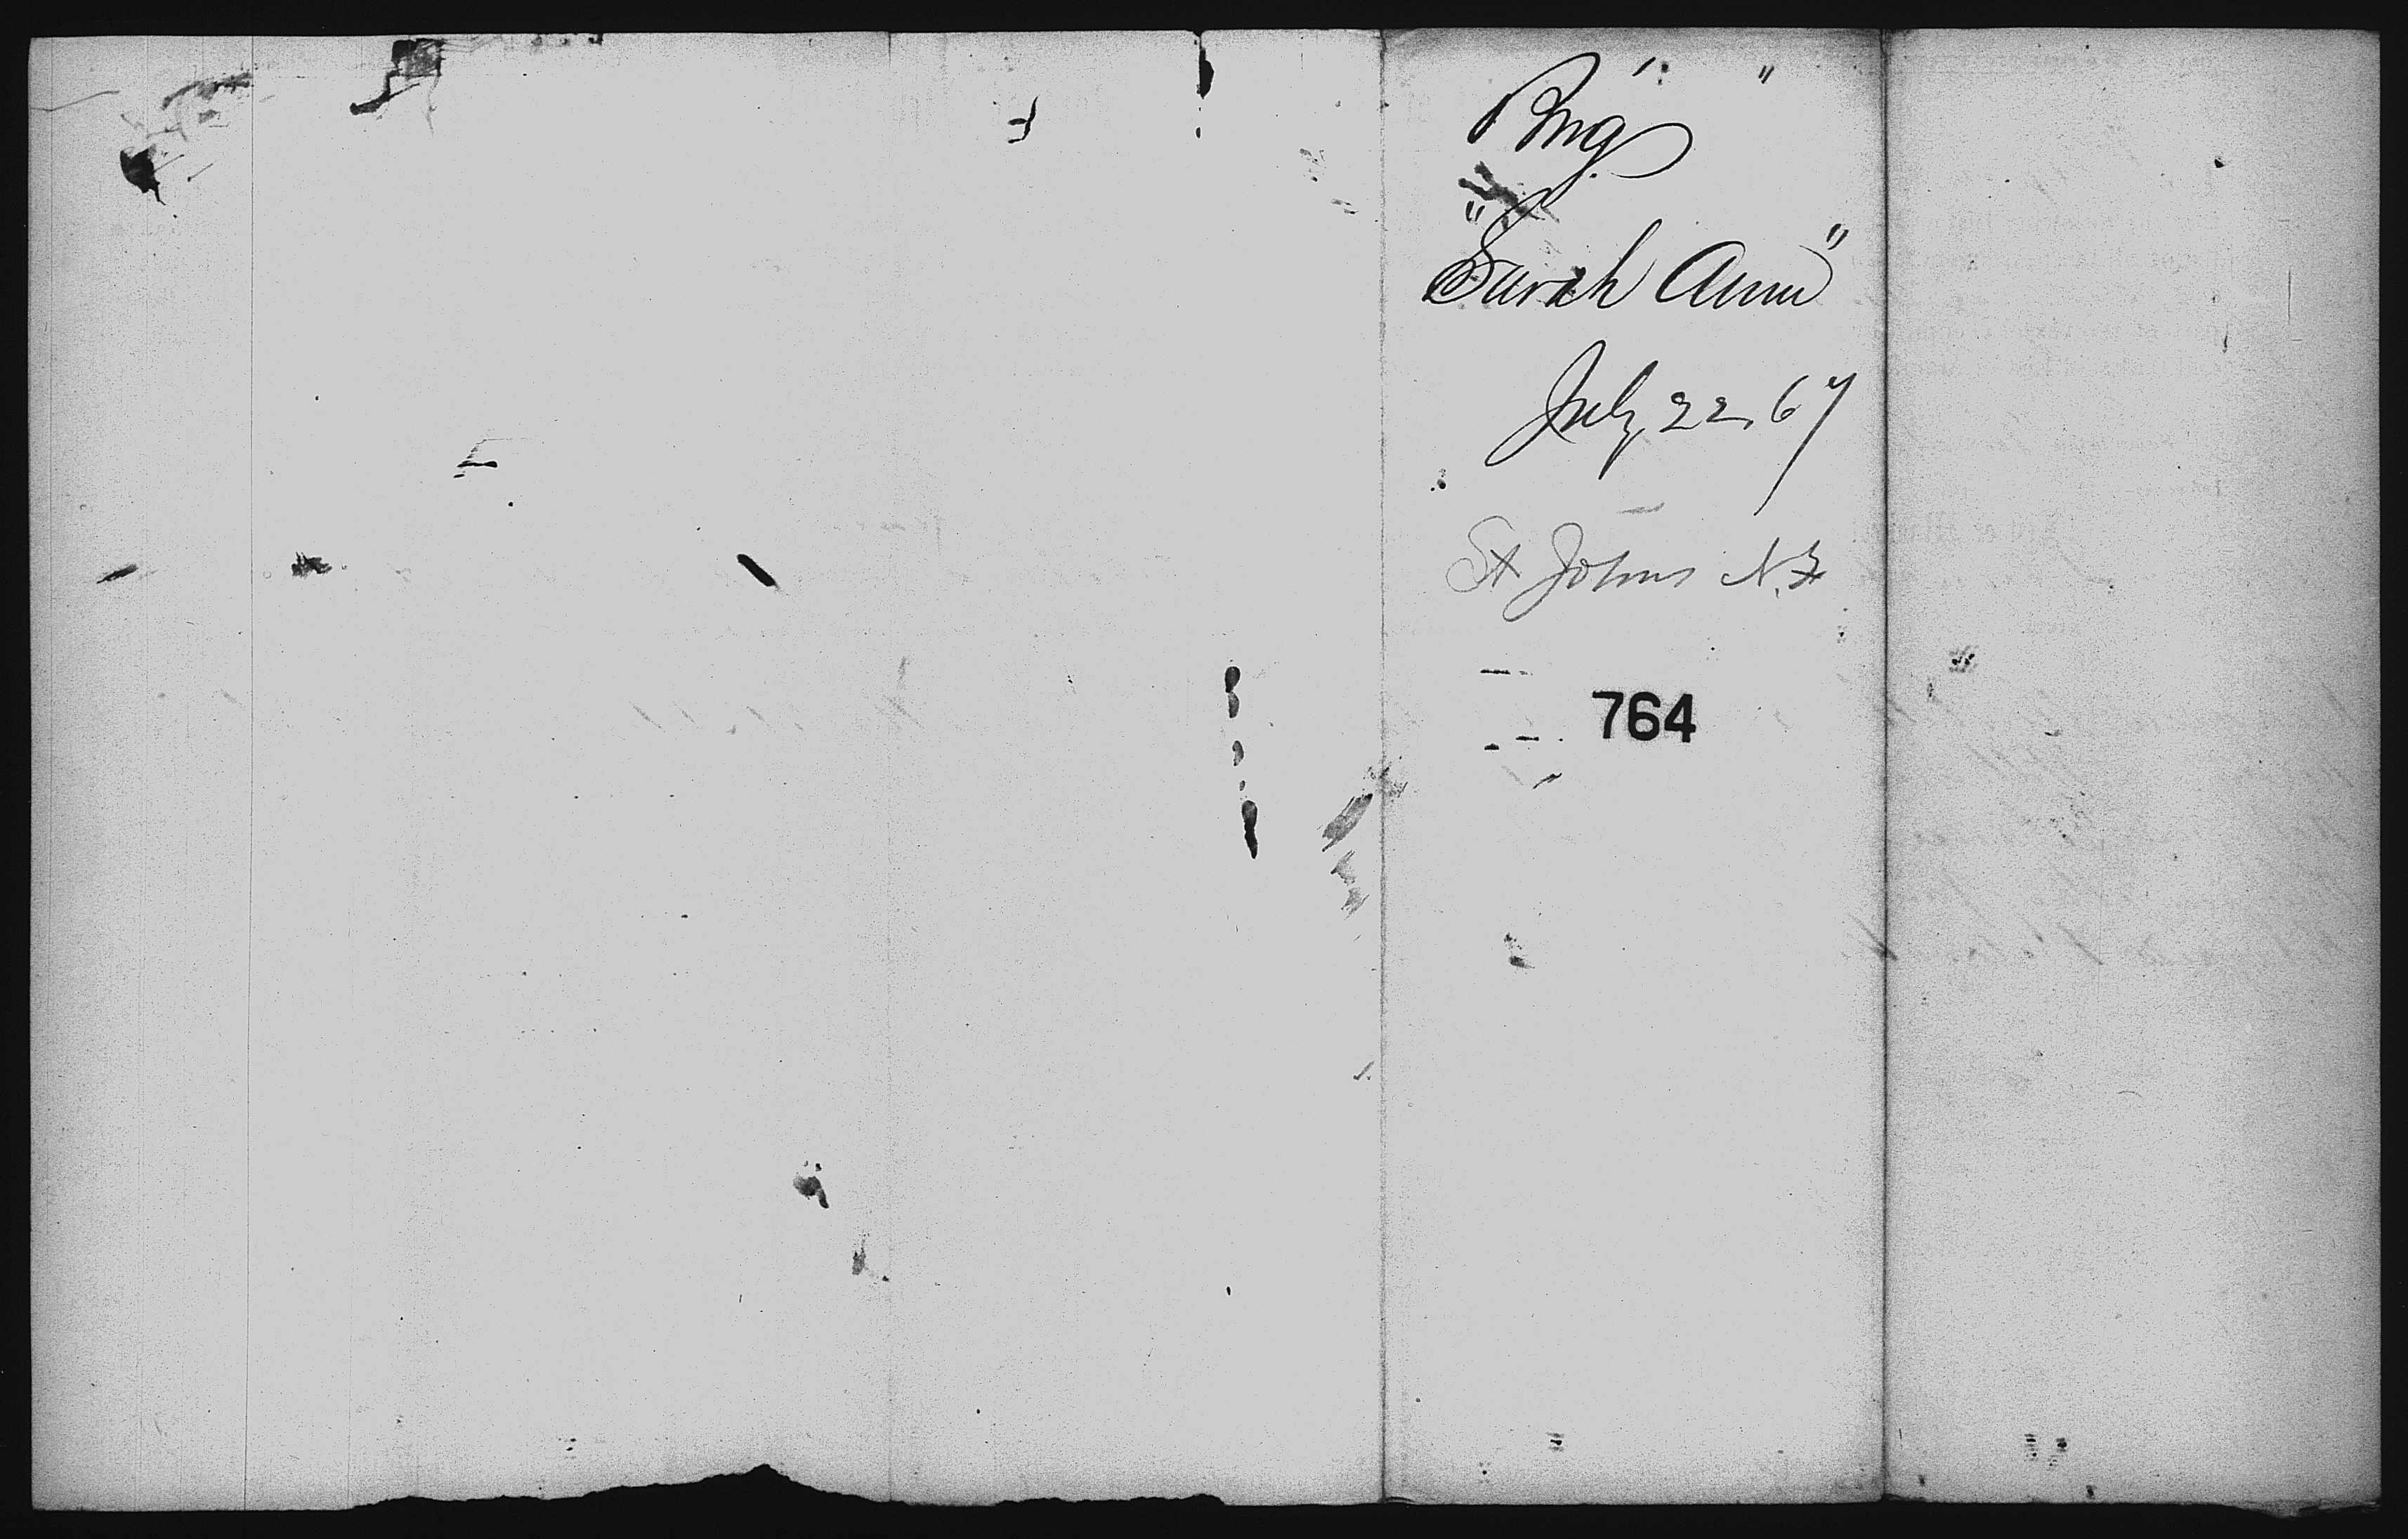 Brig
"Sarah Ann"
July 22, 67
St Johns N.F
764